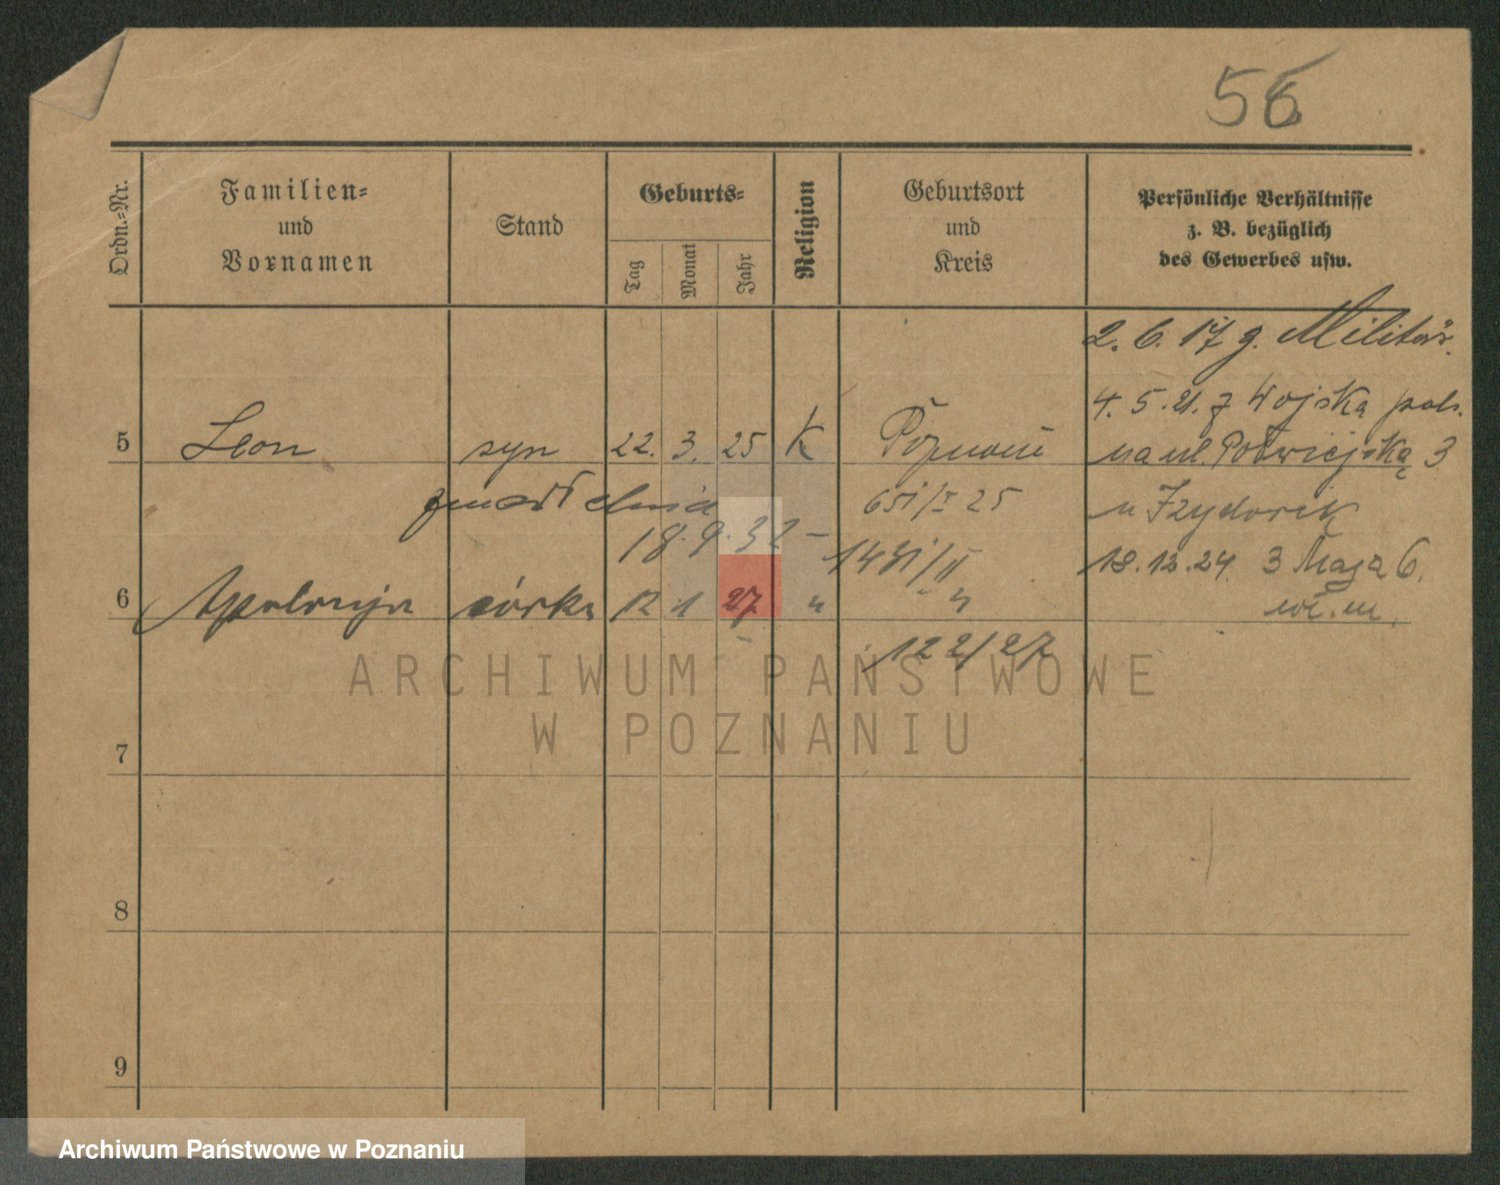 56
Ordn.-Nr.
Familien-
und
Vornamen
Stand
Geburts-
Tag
Monat
Jahr
Religion
Geburtsort
und
Kreis
Persönliche Verhältnisse
z. B. bezüglich
des Gewerbes usw.
2. 6. 17 g. Militär.
4. 5. 21. z Wojska pols.
5 Leon syn 22. 3. 25 K Poznań
na ul. 3
zmarł dnia
651/I 25
u Izydorek
18.9.32
1431/II
18.12.24. 3 Maja 6.
6 Apolonja córka 12 1 27 "
"
122/27
ARCHIWUM PAŃSTWOWE
W POZNANIU
7
8
9
Archiwum Państwowe w Poznaniu